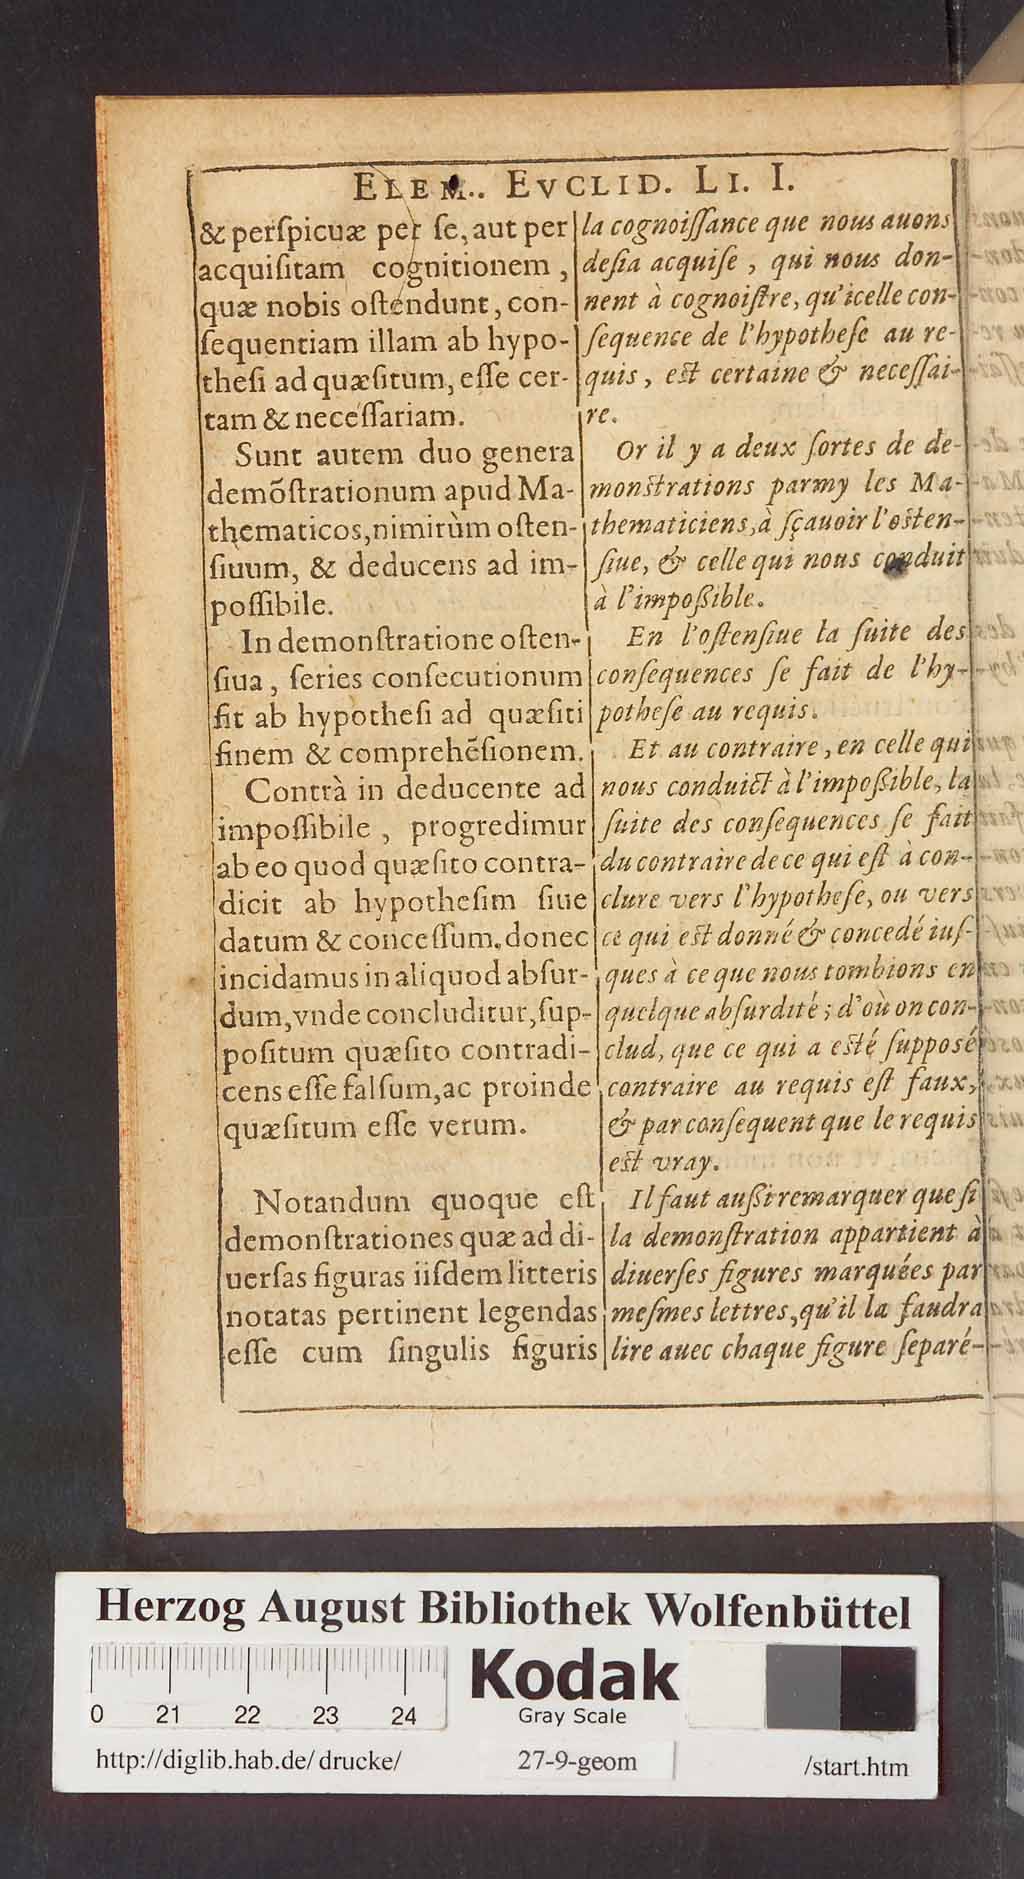 ELEM.. EVCLID. LI. I.
& perſpicuæ per ſe, aut per
acquiſitam cognitionem,
quæ nobis oſtendunt, con-
ſequentiam illam ab hypo-
theſi ad quæſitum, eſſe cer-
tam & neceſſariam.
Sunt autem duo genera
demõſtrationum apud Ma-
thematicos, nimirùm oſten-
ſiuum, & deducens ad im-
poſſibile.
In demonſtratione oſten-
ſiua, ſeries conſecutionum
fit ab hypotheſi ad quæſiti
finem & comprehẽſionem.
Contrà in deducente ad
impoſſibile, progredimur
ab eo quod quæſito contra-
dicit ab hypotheſim ſiue
datum & conceſſum, donec
incidamus in aliquod abſur-
dum, vnde concluditur, ſup-
poſitum quæſito contradi-
cens eſſe falſum, ac proinde
quæſitum eſſe verum.
Notandum quoque eſt
demonſtrationes quæ ad di-
uerſas figuras iiſdem litteris
notatas pertinent legendas
eſſe cum ſingulis figuris
la cognoiſſance que nous auons
deſia acquiſe, qui nous don-
nent à cognoiſtre, qu'icelle con-
ſequence de l'hypotheſe au re-
quis, eſt certaine & neceſſai-
re.
Or il y a deux ſortes de de-
monſtrations parmy les Ma-
thematiciens, à ſçauoir l'oſten-
ſiue, & celle qui nous conduit
à l'impoßible.
En l'oſtenſiue la ſuite des
conſequences ſe fait de l'hy-
potheſe au requis.
Et au contraire, en celle qui
nous conduict à l'impoßible, la
ſuite des conſequences ſe fait
du contraire de ce qui eſt à con-
clure vers l'hypotheſe, ou vers
ce qui eſt donné & concedé iuſ-
ques à ce que nous tombions en
quelque abſurdité; d'où on con-
clud, que ce qui a eſté ſuppoſé
contraire au requis eſt faux,
& par conſequent que le requis
eſt vray.
Il faut außi remarquer que ſi
la demonſtration appartient à
diuerſes figures marquées par
meſmes lettres, qu'il la faudra
lire auec chaque figure ſeparé-
Herzog August Bibliothek Wolfenbüttel
0 21 22 23 24
Kodak
Gray Scale
http://diglib.hab.de/drucke/ 27-9-geom /start.htm